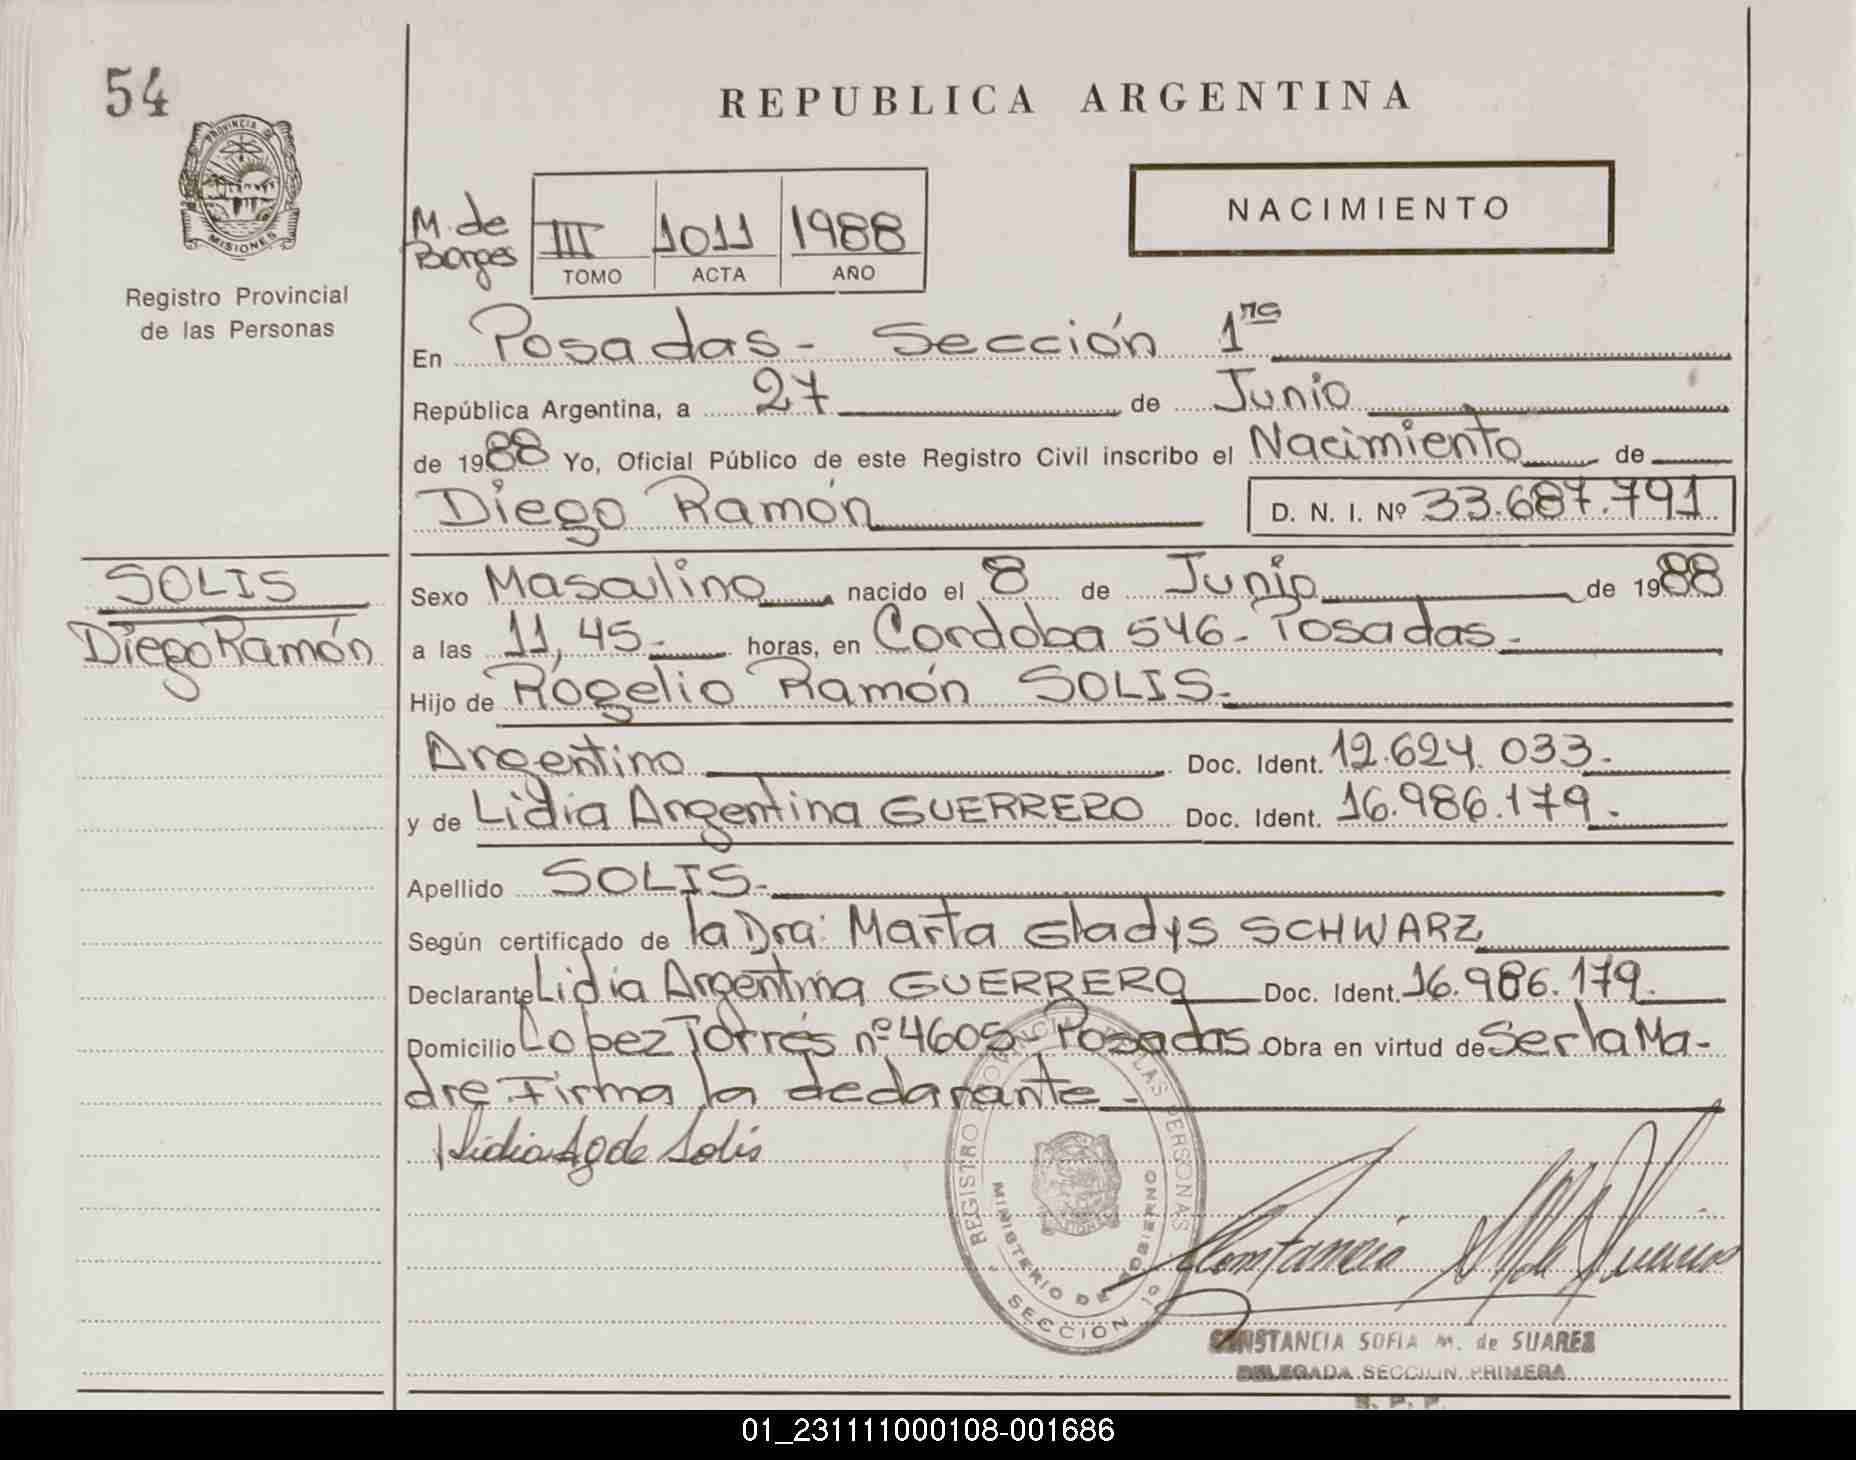 54
REPUBLICA ARGENTINA
PROVINCIA DE
MISIONES
Registro Provincial
de las Personas
M. de
Borges
III 1011 1988
TOMO ACTA AÑO
NACIMIENTO
En Posadas - Sección 1ra
República Argentina, a 27 de Junio
de 1988 Yo, Oficial Público de este Registro Civil inscribo el Nacimiento de
Diego Ramón D. N. I. Nº 33.687.791
SOLIS
Diego Ramón
Sexo Masculino nacido el 8 de Junio de 1988
a las 11,45- horas, en Cordoba 546- Posadas-
Hijo de Rogelio Ramón SOLIS-
Argentino Doc. Ident. 12.624.033-
y de Lidia Argentina GUERRERO Doc. Ident. 16.986.179-
Apellido SOLIS-
Según certificado de la Dra: Marta Gladys SCHWARZ
Declarante Lidia Argentina GUERRERO Doc. Ident. 16.986.179.
Domicilio Lopez Torres nº 4605- Posadas Obra en virtud de Ser la Ma-
dre Firma la declarante-
Lidia Ag de Solis
REGISTRO PROVINCIAL DE LAS PERSONAS
MINISTERIO DE GOBIERNO
SECCIÓN 1º
CONSTANCIA SOFIA M. de SUAREZ
DELEGADA SECCION PRIMERA
R. P. P.
01_231111000108-001686